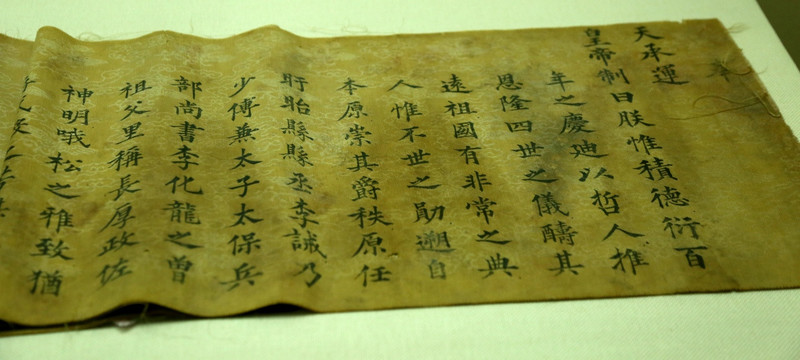 奉
天承運
皇帝制曰朕惟積德衍百
年之慶迪以哲人推
恩隆四世之儀醻其
遠祖國有非常之典
人惟不世之勛遡自
本原崇其爵秩原任
盱眙縣縣丞李誠乃
少傅兼太子太保兵
部尚書李化龍之曾
祖父里稱長厚政佐
神明哦松之雅致猶